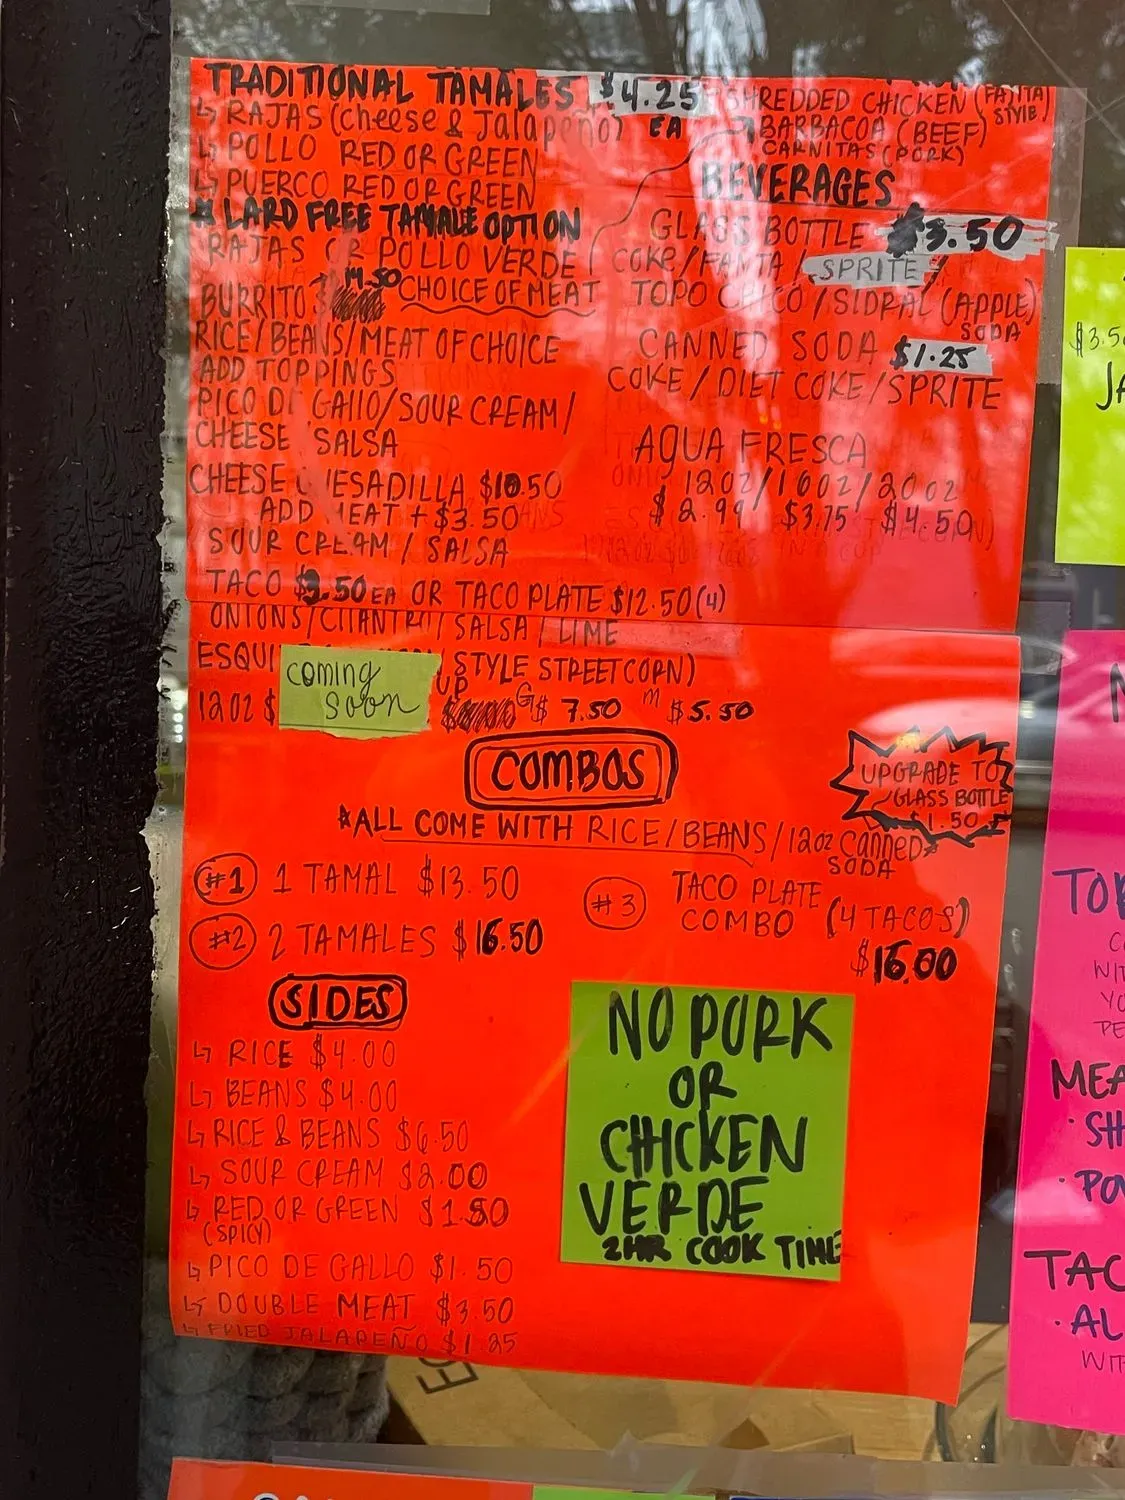 TRADITIONAL TAMALES $4.25 EA
↳ RAJAS (cheese & Jalapeño)
↳ POLLO RED OR GREEN
↳ PUERCO RED OR GREEN
* LARD FREE TAMALE OPTION
RAJAS OR POLLO VERDE
BURRITO $14.50 CHOICE OF MEAT
RICE/BEANS/MEAT OF CHOICE
ADD TOPPINGS
PICO DE GALLO/SOUR CREAM/
CHEESE SALSA
CHEESE QUESADILLA $10.50
ADD MEAT + $3.50
SOUR CREAM / SALSA
SHREDDED CHICKEN (FAJITA STYLE)
BARBACOA (BEEF)
CARNITAS (PORK)
BEVERAGES
GLASS BOTTLE $3.50
COKE/FANTA/SPRITE/
TOPO CHICO/SIDRAL (APPLE)
SODA
CANNED SODA $1.25
COKE/DIET COKE/SPRITE
AGUA FRESCA
12OZ/16OZ/20OZ
$2.99 $3.75 $4.50
TACO $3.50 EA OR TACO PLATE $12.50 (4)
ONIONS/CILANTRO/SALSA/LIME
ESQUI STYLE STREET CORN)
12OZ $ UP G $7.50 M $5.50
coming
soon
COMBOS
*ALL COME WITH RICE/BEANS/12oz canned
SODA
UPGRADE TO
GLASS BOTTLE
$1.50
#1 1 TAMAL $13.50
#2 2 TAMALES $16.50
#3 TACO PLATE
COMBO (4 TACOS)
$16.00
SIDES
↳ RICE $4.00
↳ BEANS $4.00
↳ RICE & BEANS $6.50
↳ SOUR CREAM $2.00
↳ RED OR GREEN $1.50
(SPICY)
↳ PICO DE GALLO $1.50
↳ DOUBLE MEAT $3.50
↳ FRIED JALAPEÑO $1.25
NO PORK
OR
CHICKEN
VERDE
2HR COOK TIME
$3.5
JA
TO
WIT
YO
MEA
· SH
· PO
TAC
· AL
WIT